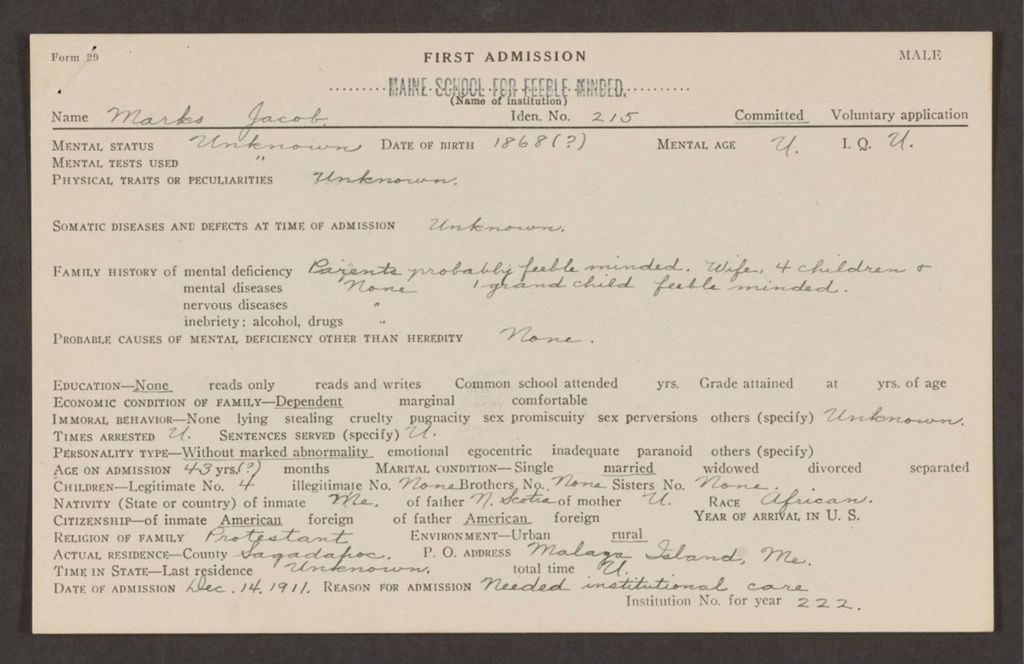 Form 29 FIRST ADMISSION MALE
MAINE SCHOOL FOR FEEBLE MINDED.
(Name of institution)
Name Marks Jacob. Iden. No. 215 Committed Voluntary application
MENTAL STATUS Unknown DATE OF BIRTH 1868(?) MENTAL AGE U. I. Q. U.
MENTAL TESTS USED "
PHYSICAL TRAITS OR PECULIARITIES Unknown.
SOMATIC DISEASES AND DEFECTS AT TIME OF ADMISSION Unknown.
FAMILY HISTORY of mental deficiency Parents probably feeble minded. Wife, 4 children &
mental diseases None 1 grand child feeble minded.
nervous diseases "
inebriety: alcohol, drugs "
PROBABLE CAUSES OF MENTAL DEFICIENCY OTHER THAN HEREDITY None.
EDUCATION—None reads only reads and writes Common school attended yrs. Grade attained at yrs. of age
ECONOMIC CONDITION OF FAMILY—Dependent marginal comfortable
IMMORAL BEHAVIOR—None lying stealing cruelty pugnacity sex promiscuity sex perversions others (specify) Unknown.
TIMES ARRESTED U. SENTENCES SERVED (specify) U.
PERSONALITY TYPE—Without marked abnormality emotional egocentric inadequate paranoid others (specify)
AGE ON ADMISSION 43 yrs.(?) months MARITAL CONDITION—Single married widowed divorced separated
CHILDREN—Legitimate No. 4 illegitimate No. None Brothers, No. None Sisters No. None.
NATIVITY (State or country) of inmate Me. of father N. Scotia of mother U. RACE African.
CITIZENSHIP—of inmate American foreign of father American foreign YEAR OF ARRIVAL IN U. S.
RELIGION OF FAMILY Protestant ENVIRONMENT—Urban rural
ACTUAL RESIDENCE—County Sagadahoc. P. O. ADDRESS Malaga Island, Me.
TIME IN STATE—Last residence Unknown. total time U.
DATE OF ADMISSION Dec. 14. 1911. REASON FOR ADMISSION Needed institutional care
Institution No. for year 222.